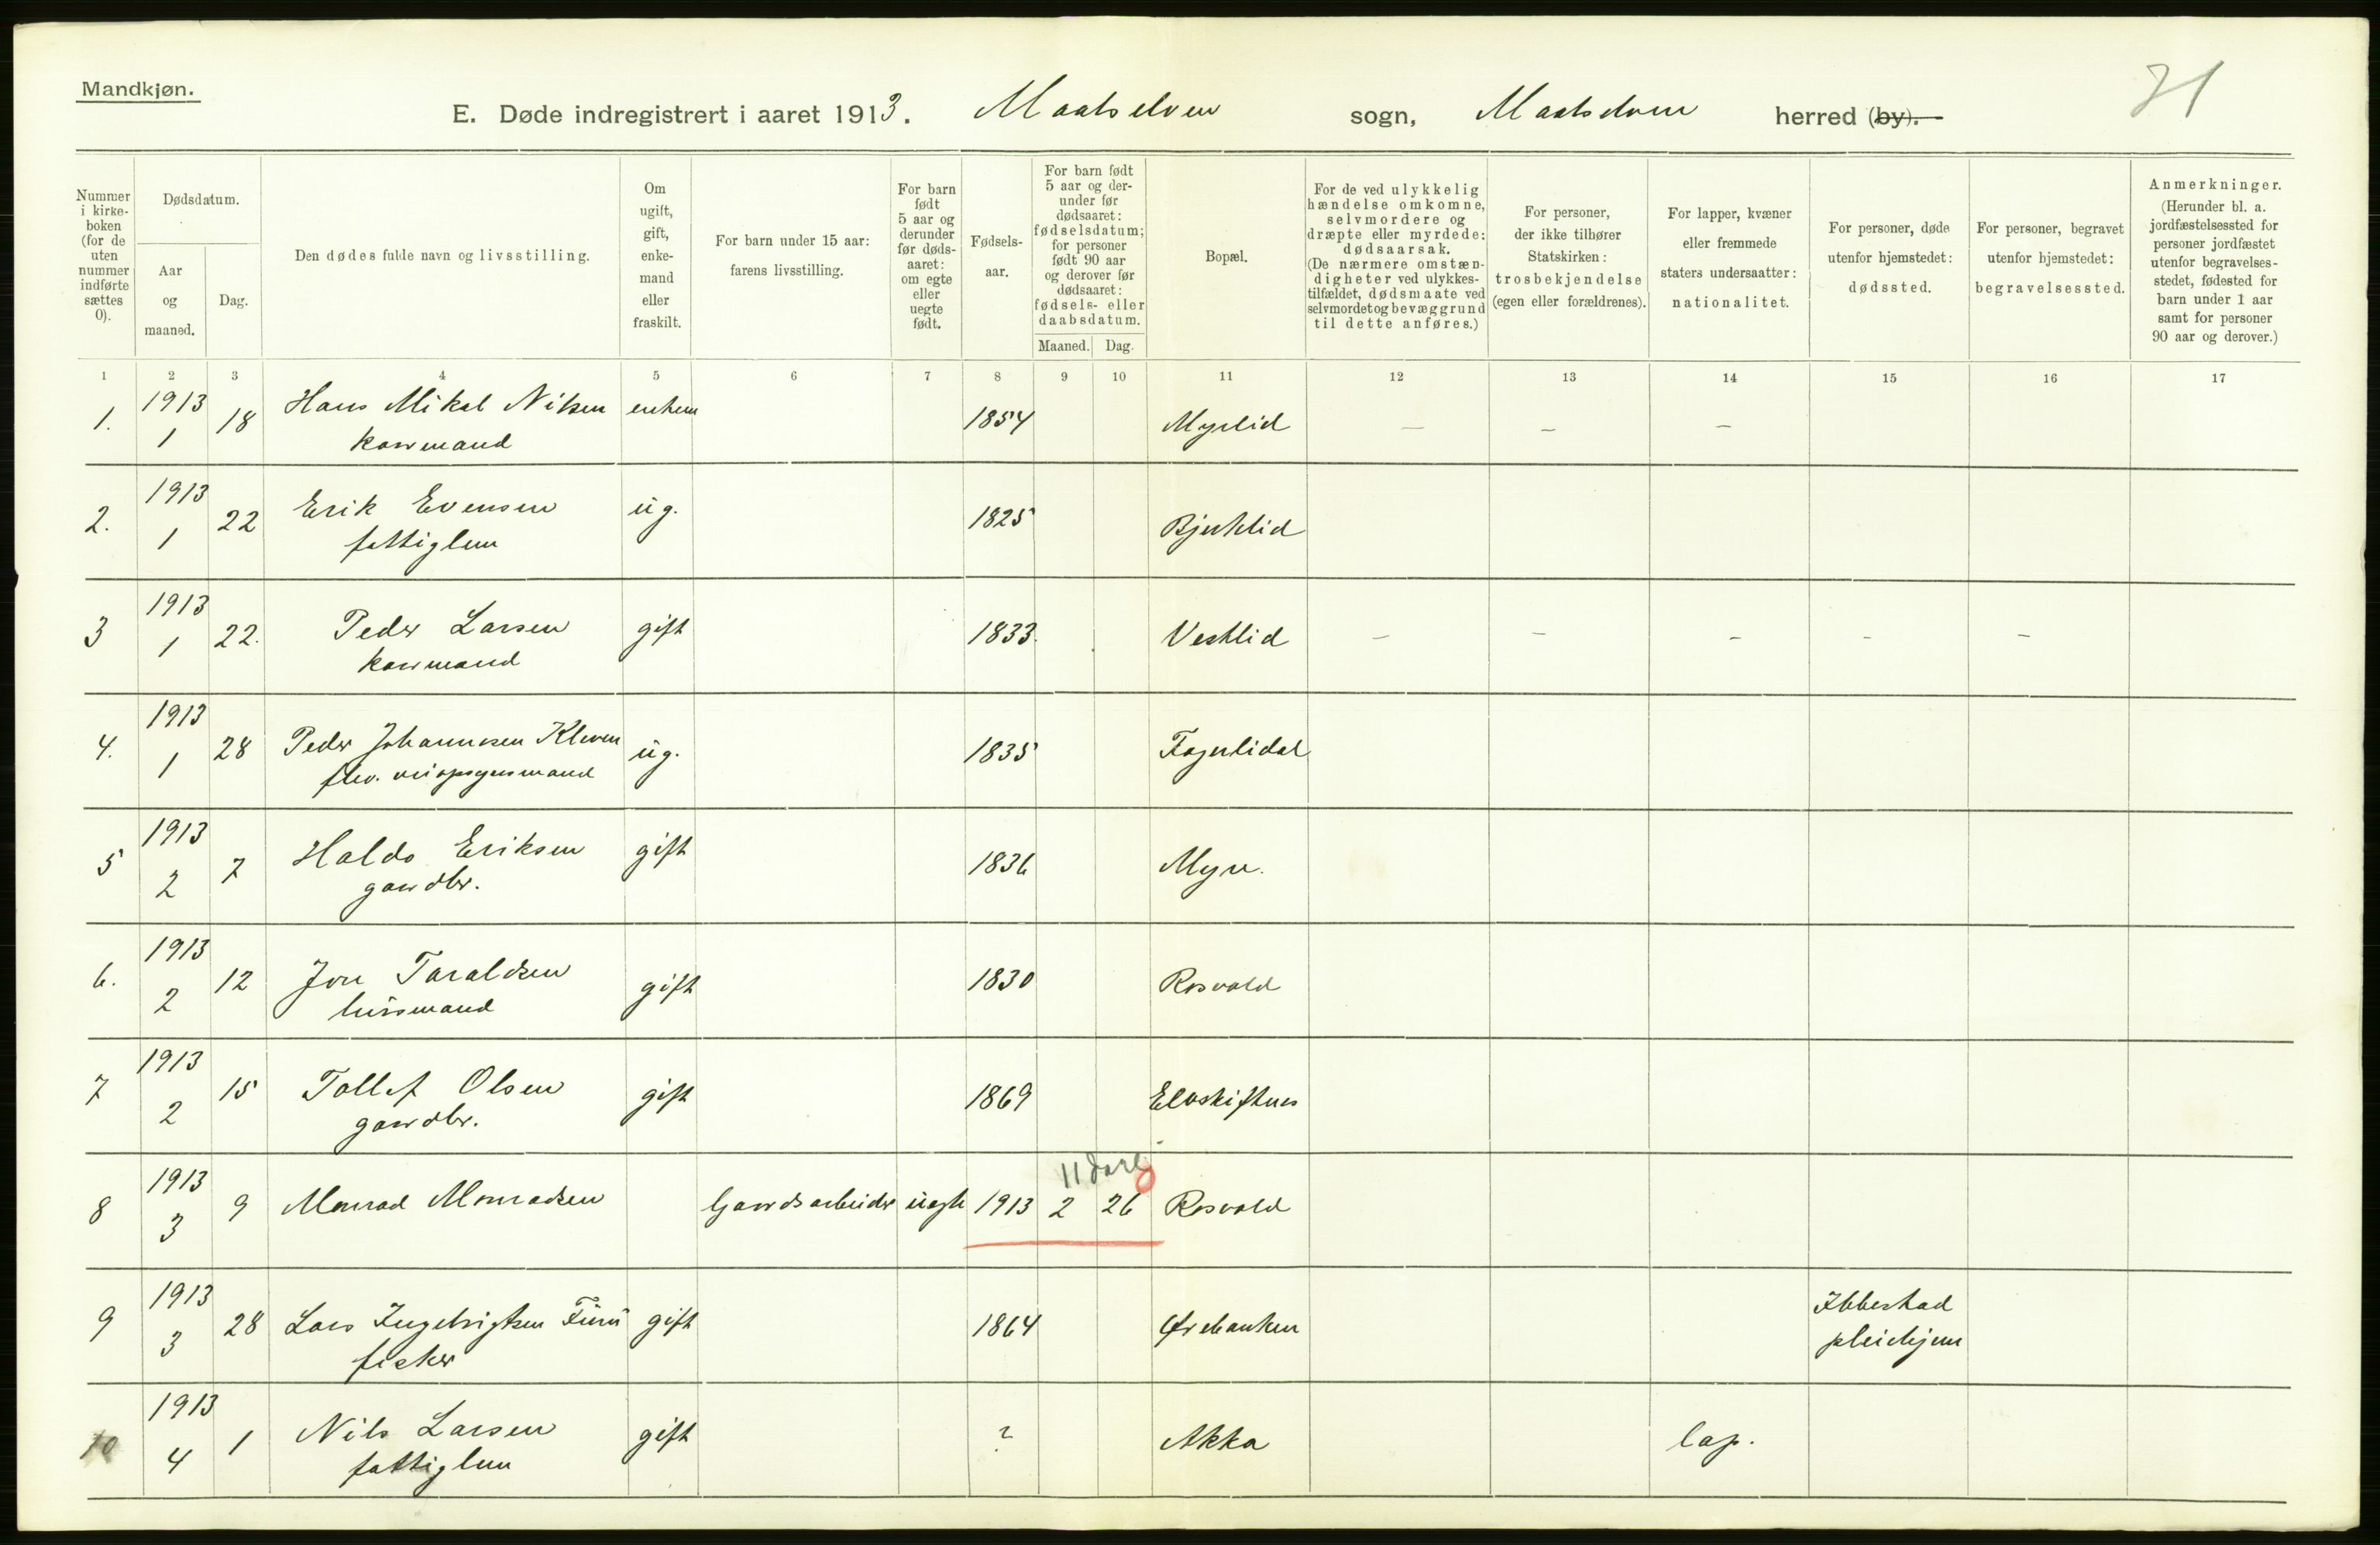 Mandkjøn.
E. Døde indregistrert i aaret 1913. Maalselven sogn, Maalselven herred (by).
Nummer i kirke-boken (for de uten nummer indførte sættes 0).
Dødsdatum.
Aar og maaned.
Dag.
Den dødes fulde navn og livsstilling.
Om ugift, gift, enke-mand eller fraskilt.
For barn under 15 aar: farens livsstilling.
For barn født 5 aar og derunder før døds-aaret: om egte eller uegte født.
Fødsels-aar.
For barn født 5 aar og der-under før dødsaaret: fødselsdatum; for personer født 90 aar og derover før dødsaaret: fødsels- eller daabsdatum.
Maaned. Dag.
Bopæl.
For de ved ulykkelig hændelse omkomne, selvmordere og dræpte eller myrdede: dødsaarsak. (De nærmere omstæn-digheter ved ulykkes-tilfældet, dødsmaate ved selvmordet og bevæggrund til dette anføres.)
For personer, der ikke tilhører Statskirken: trosbekjendelse (egen eller forældrenes).
For lapper, kvæner eller fremmede staters undersaatter: nationalitet.
For personer, døde utenfor hjemstedet: dødssted.
For personer, begravet utenfor hjemstedet: begravelsessted.
Anmerkninger. (Herunder bl. a. jordfæstelsessted for personer jordfæstet utenfor begravelses-stedet, fødested for barn under 1 aar samt for personer 90 aar og derover.)
1 2 3 4 5 6 7 8 9 10 11 12 13 14 15 16 17
1. 1913 1 18 Hans Mikal Nilsen enkem 1854 Myrlid — — —
kaarmand
2. 1913 1 22 Erik Evensen ug. 1825 Bjerklid
fattiglem
3 1913 1 22. Peder Larsen gift 1833. Vestlid — — — — —
kaarmand
4. 1913 1 28 Peder Johannesen Kleven ug. 1835 Fagerlidal
flev. veiopsynsmand
5 1913 2 7 Haldo Eriksen gift 1836 Myre.
gaardbr.
6. 1913 2 12 Jon Taraldsen gift 1830 Rosvold
husmand
7 1913 2 15 Tollef Olsen gift 1869 Elvskiftnes
gaardbr.
11 dage
8 1913 3 9 Monrad Monradsen Gaardsarbeider uegte 1913 2 26 Rosvold
9 1913 3 28 Lars Ingebrigtsen Furu gift 1864 Ørebanken Ibbestad pleiehjem
fisker
10 1913 4 1 Nils Larsen gift ? Akka lap.
fattiglem